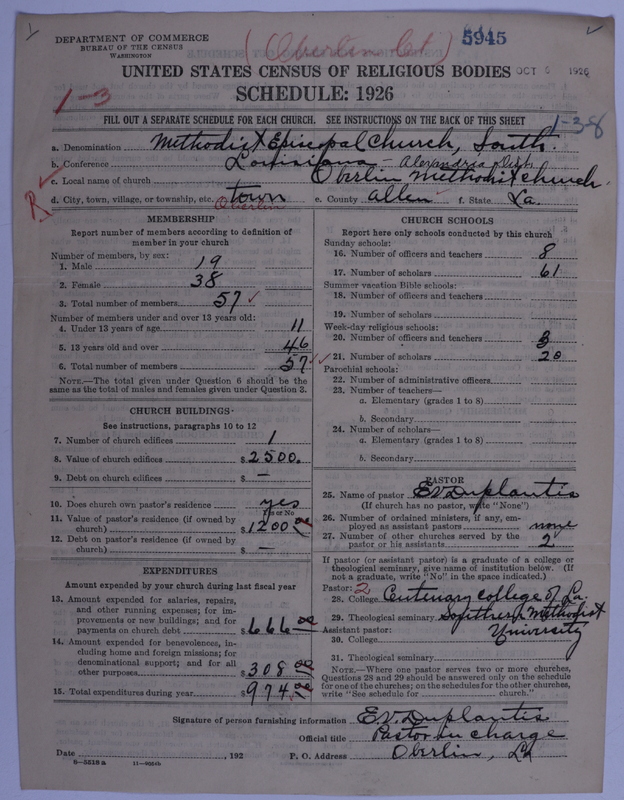 DEPARTMENT OF COMMERCE
BUREAU OF THE CENSUS
WASHINGTON
(Oberlin Ct)
5945
UNITED STATES CENSUS OF RELIGIOUS BODIES
OCT 6 1926
1-3
SCHEDULE: 1926
FILL OUT A SEPARATE SCHEDULE FOR EACH CHURCH. SEE INSTRUCTIONS ON THE BACK OF THIS SHEET
1-38
a. Denomination Methodist Episcopal Church, South.
b. Conference Louisiana - Alexandria Dist.
c. Local name of church Oberlin Methodist church.
R
d. City, town, village, or township, etc. town e. County allen f. State La.
Oberlin
MEMBERSHIP
Report number of members according to definition of
member in your church
Number of members, by sex:
1. Male 19
2. Female 38
3. Total number of members 57
Number of members under and over 13 years old:
4. Under 13 years of age 11
5. 13 years old and over 46
6. Total number of members 57
NOTE.—The total given under Question 6 should be the
same as the total of males and females given under Question 3.
CHURCH BUILDINGS
See instructions, paragraphs 10 to 12
7. Number of church edifices 1
8. Value of church edifices $2500.
9. Debt on church edifices $ —
10. Does church own pastor's residence yes
Yes or No
11. Value of pastor's residence (if owned by
church) $1200.00
12. Debt on pastor's residence (if owned by
church) $ —
EXPENDITURES
Amount expended by your church during last fiscal year
13. Amount expended for salaries, repairs,
and other running expenses; for im-
provements or new buildings; and for
payments on church debt $666.00
14. Amount expended for benevolences, in-
cluding home and foreign missions; for
denominational support; and for all
other purposes $308.00
15. Total expenditures during year $974.00
CHURCH SCHOOLS
Report here only schools conducted by this church
Sunday schools:
16. Number of officers and teachers 8
17. Number of scholars 61
Summer vacation Bible schools:
18. Number of officers and teachers
19. Number of scholars
Week-day religious schools:
20. Number of officers and teachers 3
21. Number of scholars 20
Parochial schools:
22. Number of administrative officers
23. Number of teachers—
a. Elementary (grades 1 to 8)
b. Secondary
24. Number of scholars—
a. Elementary (grades 1 to 8)
b. Secondary
PASTOR
25. Name of pastor E V Duplantis
(If church has no pastor, write "None")
26. Number of ordained ministers, if any, em-
ployed as assistant pastors none
27. Number of other churches served by the
pastor or his assistants 2
If pastor (or assistant pastor) is a graduate of a college or
theological seminary, give name of institution below. (If
not a graduate, write "No" in the space indicated.)
Pastor: 2
28. College Centenary college of La.
29. Theological seminary Southern Methodist
Assistant pastor: University
30. College
31. Theological seminary
NOTE.—Where one pastor serves two or more churches,
Questions 28 and 29 should be answered only on the schedule
for one of the churches; on the schedules for the other churches,
write "See schedule for church."
Signature of person furnishing information E.V. Duplantis
Official title Pastor in charge
Date , 192 P. O. Address Oberlin, La
8-3518a 11-9054b